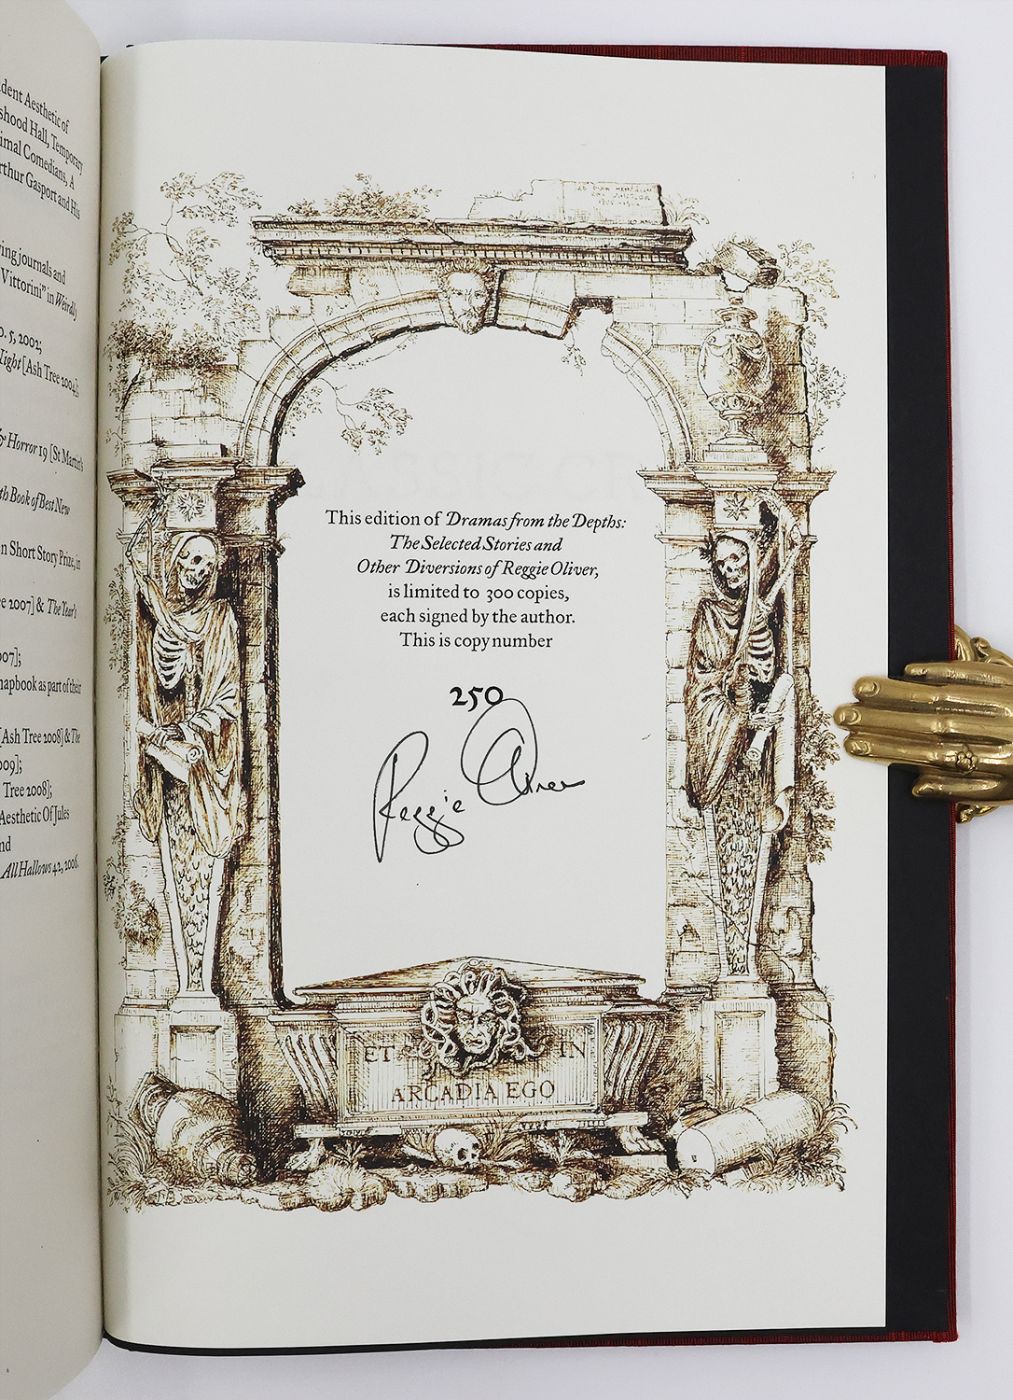 dent Aesthetic of
shood Hall, Temporary
imal Comedians, A
rthur Gasport and His
ving journals and
Vittorini" in Weirdly
o. 5, 2002;
Tight [Ash Tree 2004];
& Horror 19 [St Martin's
th Book of Best New
n Short Story Prize, in
e 2007] & The Year's
007];
hapbook as part of their
[Ash Tree 2008] & The
009];
Tree 2008];
Aesthetic Of Jules
nd
All Hallows 42, 2006.
This edition of Dramas from the Depths:
The Selected Stories and
Other Diversions of Reggie Oliver,
is limited to 300 copies,
each signed by the author.
This is copy number
250
Reggie Oliver
ET IN
ARCADIA EGO